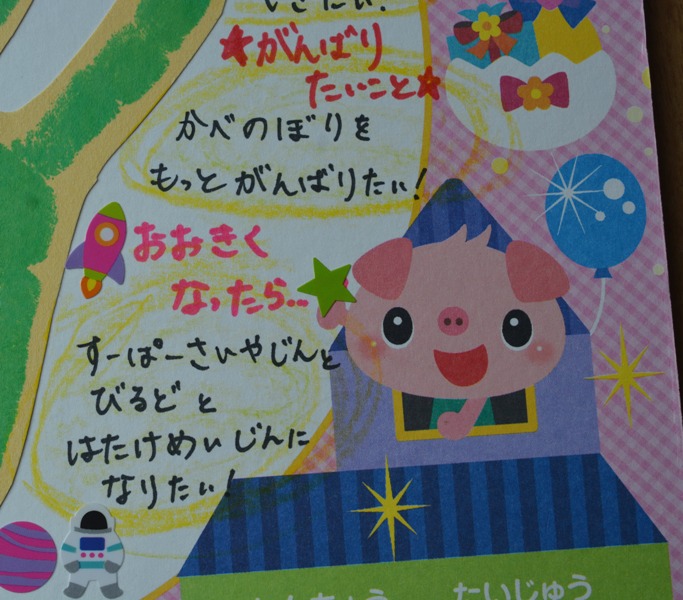 ★がんばり
たいこと★
かべのぼりを
もっとがんばりたい!
おおきく
なったら...
すーぱーさいやじんと
びるどと
はたけめいじんに
なりたい!
たいじゅう